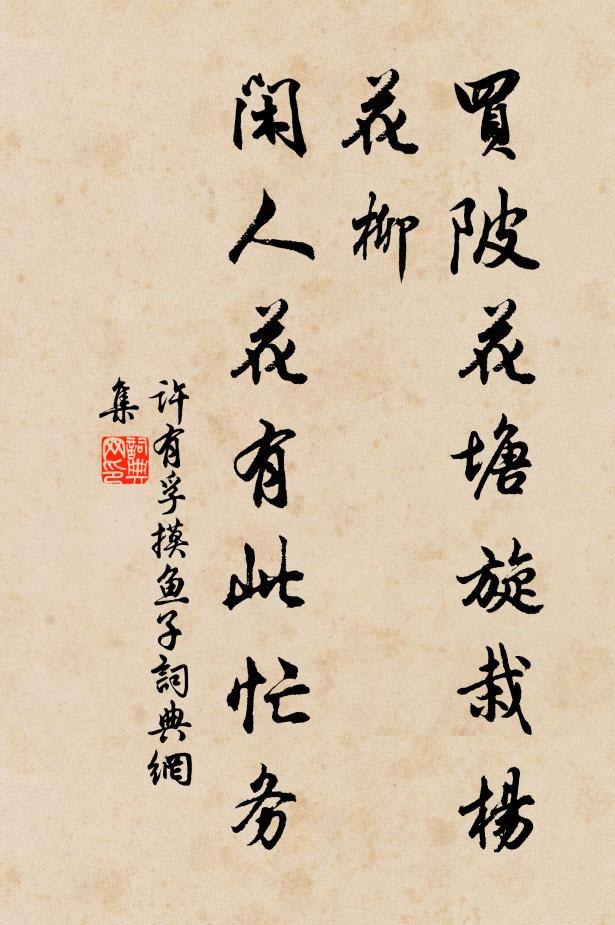 買陂花塘旋栽楊
花柳
閑人花有此忙务
许有孚摸鱼子詞典網
集
詞典
网印